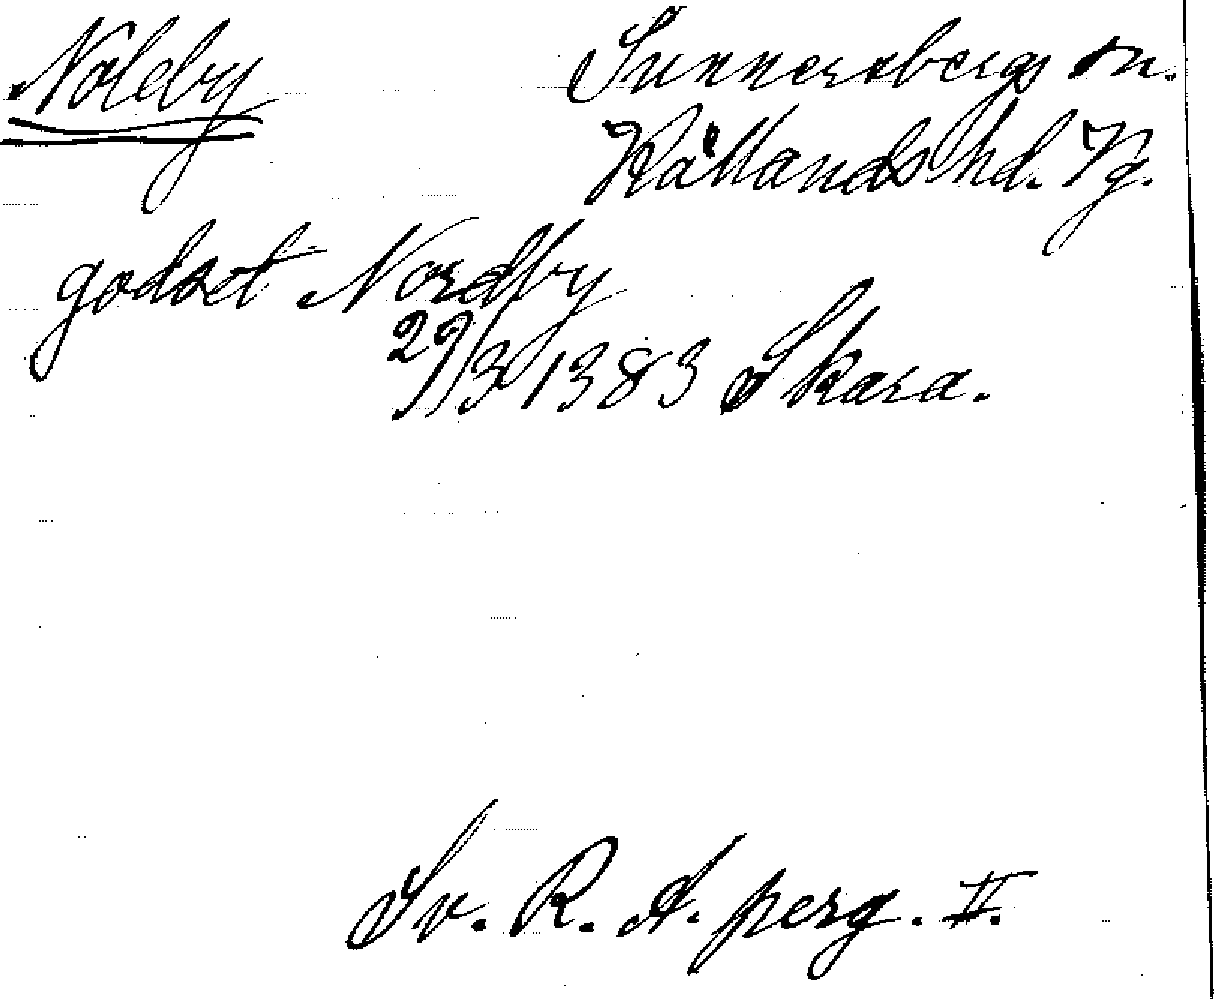 Noleby Sunnersbergs sn.
Kållands hd. Vg.
godset Nordby
29/3 1383 Skara.
Sv. R. A. perg. II.